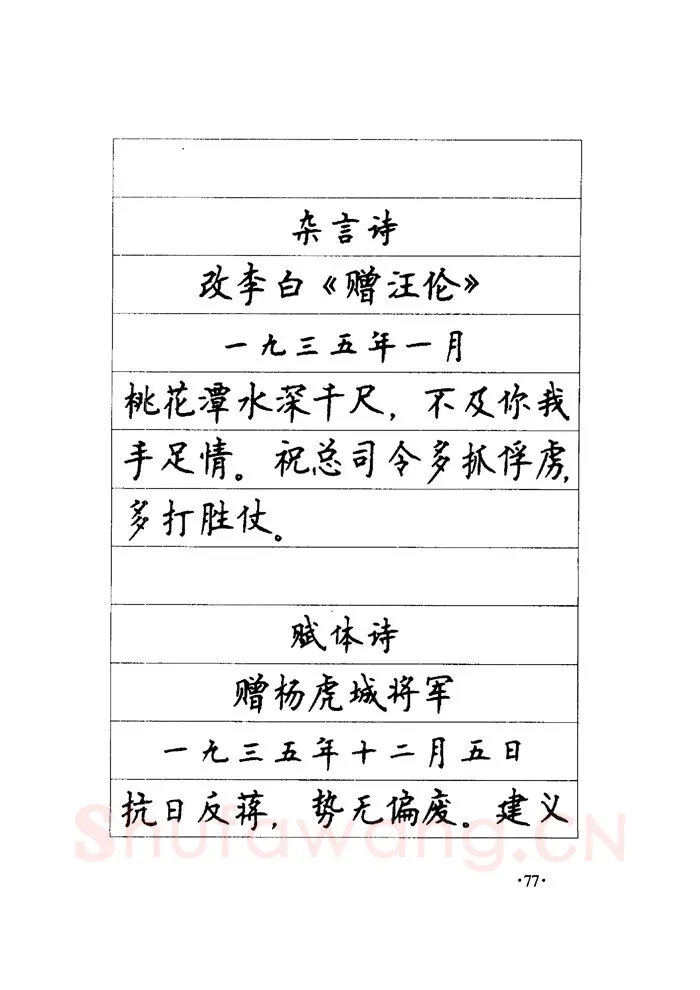 杂言诗
改李白《赠汪伦》
一九三五年一月
桃花潭水深千尺，不及你我
手足情。祝总司令多抓俘虏，
多打胜仗。
赋体诗
赠杨虎城将军
一九三五年十二月五日
抗日反蒋，势无偏废。建义
Shufawang.CN
·77·